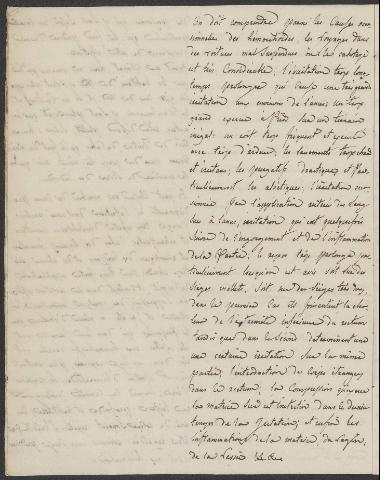 On doit comprendre parmi les Causes occa
sionnelles des hémorrhoïdes, les voyages dans
des voitures mal Suspendues où le cahotage
est très Considérable; l'équitation trop long-
temps prolongée qui cause une très grande
irritation aux environs de l'anus; un trop
grand exercice à pied sur un terrain
inégal; un coït trop fréquent et exercé
avec trop d'ardeur; les lavements trop chauds
et irritans; les purgatifs drastiques et par-
ticulièrement les aloëtiques; l'irritation occa-
sionnée par l'application réitérée des Sang-
sues à l'anus, irritation qui est quelquefois
suivie de l'engorgement et de l'inflammation
de la Partie; le repos trop prolongé par-
ticulièrement lorsqu'on est assis soit sur des
sièges mollets, soit sur des sièges très durs,
dans le premier Cas ils fomentent la cha-
leur de l'extrémité inférieure du rectum
tandis que dans le Second déterminent une
une certaine irritation sur la même
partie; l'introduction de corps étrangers
dans le rectum; la Compression qu'exerce
la matrice sur cet intestin dans les derniers
temps de la Gestation; et enfin les
inflammations de la matrice, du Vagin,
de la Vessie &c &c